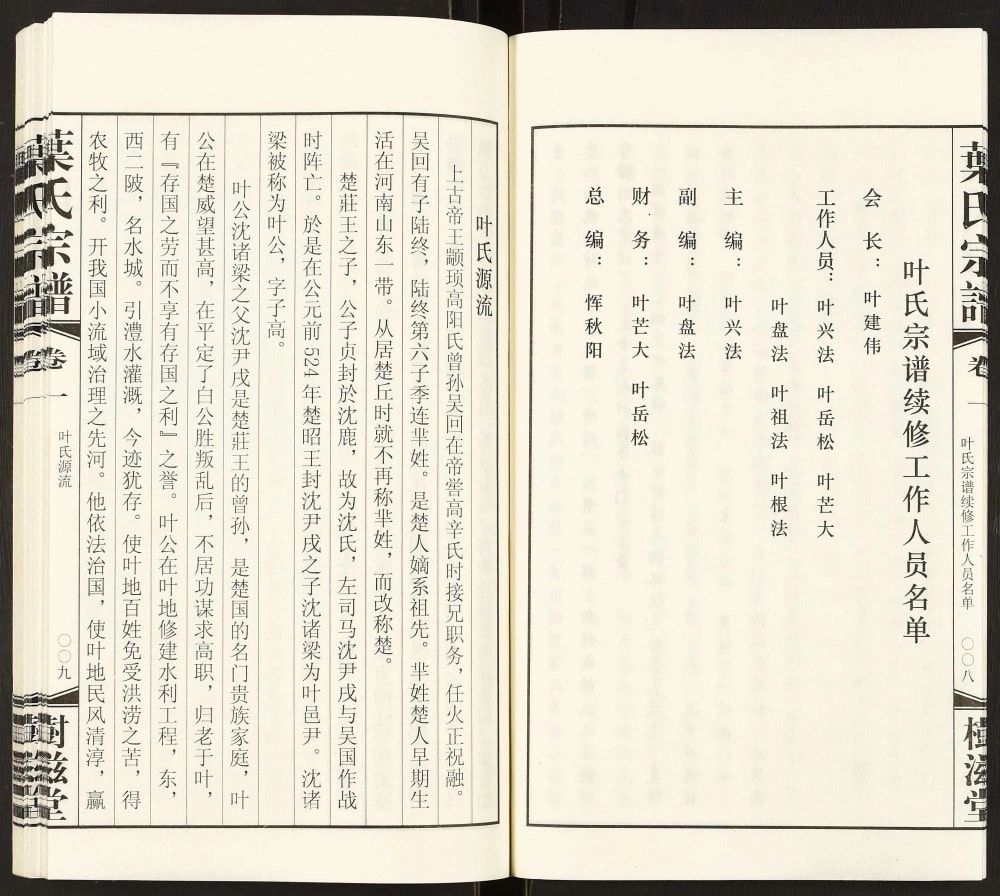 葉氏宗譜
卷一
叶氏宗谱续修工作人员名单
〇〇八
樹滋堂
叶氏宗谱续修工作人员名单
会长：叶建伟
工作人员：叶兴法 叶岳松 叶芒大
叶盘法 叶祖法 叶根法
主编：叶兴法
副编：叶盘法
财务：叶芒大 叶岳松
总编：恽秋阳
叶氏源流
上古帝王颛顼高阳氏曾孙吴回在帝喾高辛氏时接兄职务，任火正祝融。
吴回有子陆终，陆终第六子季连芈姓。是楚人嫡系祖先。芈姓楚人早期生
活在河南山东一带。从居楚丘时就不再称芈姓，而改称楚。
楚莊王之子，公子贞封於沈鹿，故为沈氏，左司马沈尹戌与吴国作战
时阵亡。於是在公元前524年楚昭王封沈尹戌之子沈诸梁为叶邑尹。沈诸
梁被称为叶公，字子高。
叶公沈诸梁之父沈尹戌是楚莊王的曾孙，是楚国的名门贵族家庭，叶
公在楚威望甚高，在平定了白公胜叛乱后，不居功谋求高职，归老于叶，
有『存国之劳而不享有存国之利』之誉。叶公在叶地修建水利工程，东，
西二陂，名水城。引澧水灌溉，今迹犹存。使叶地百姓免受洪涝之苦，得
农牧之利。开我国小流域治理之先河。他依法治国，使叶地民风清淳，赢
葉氏宗譜
卷一
叶氏源流
〇〇九
樹滋堂